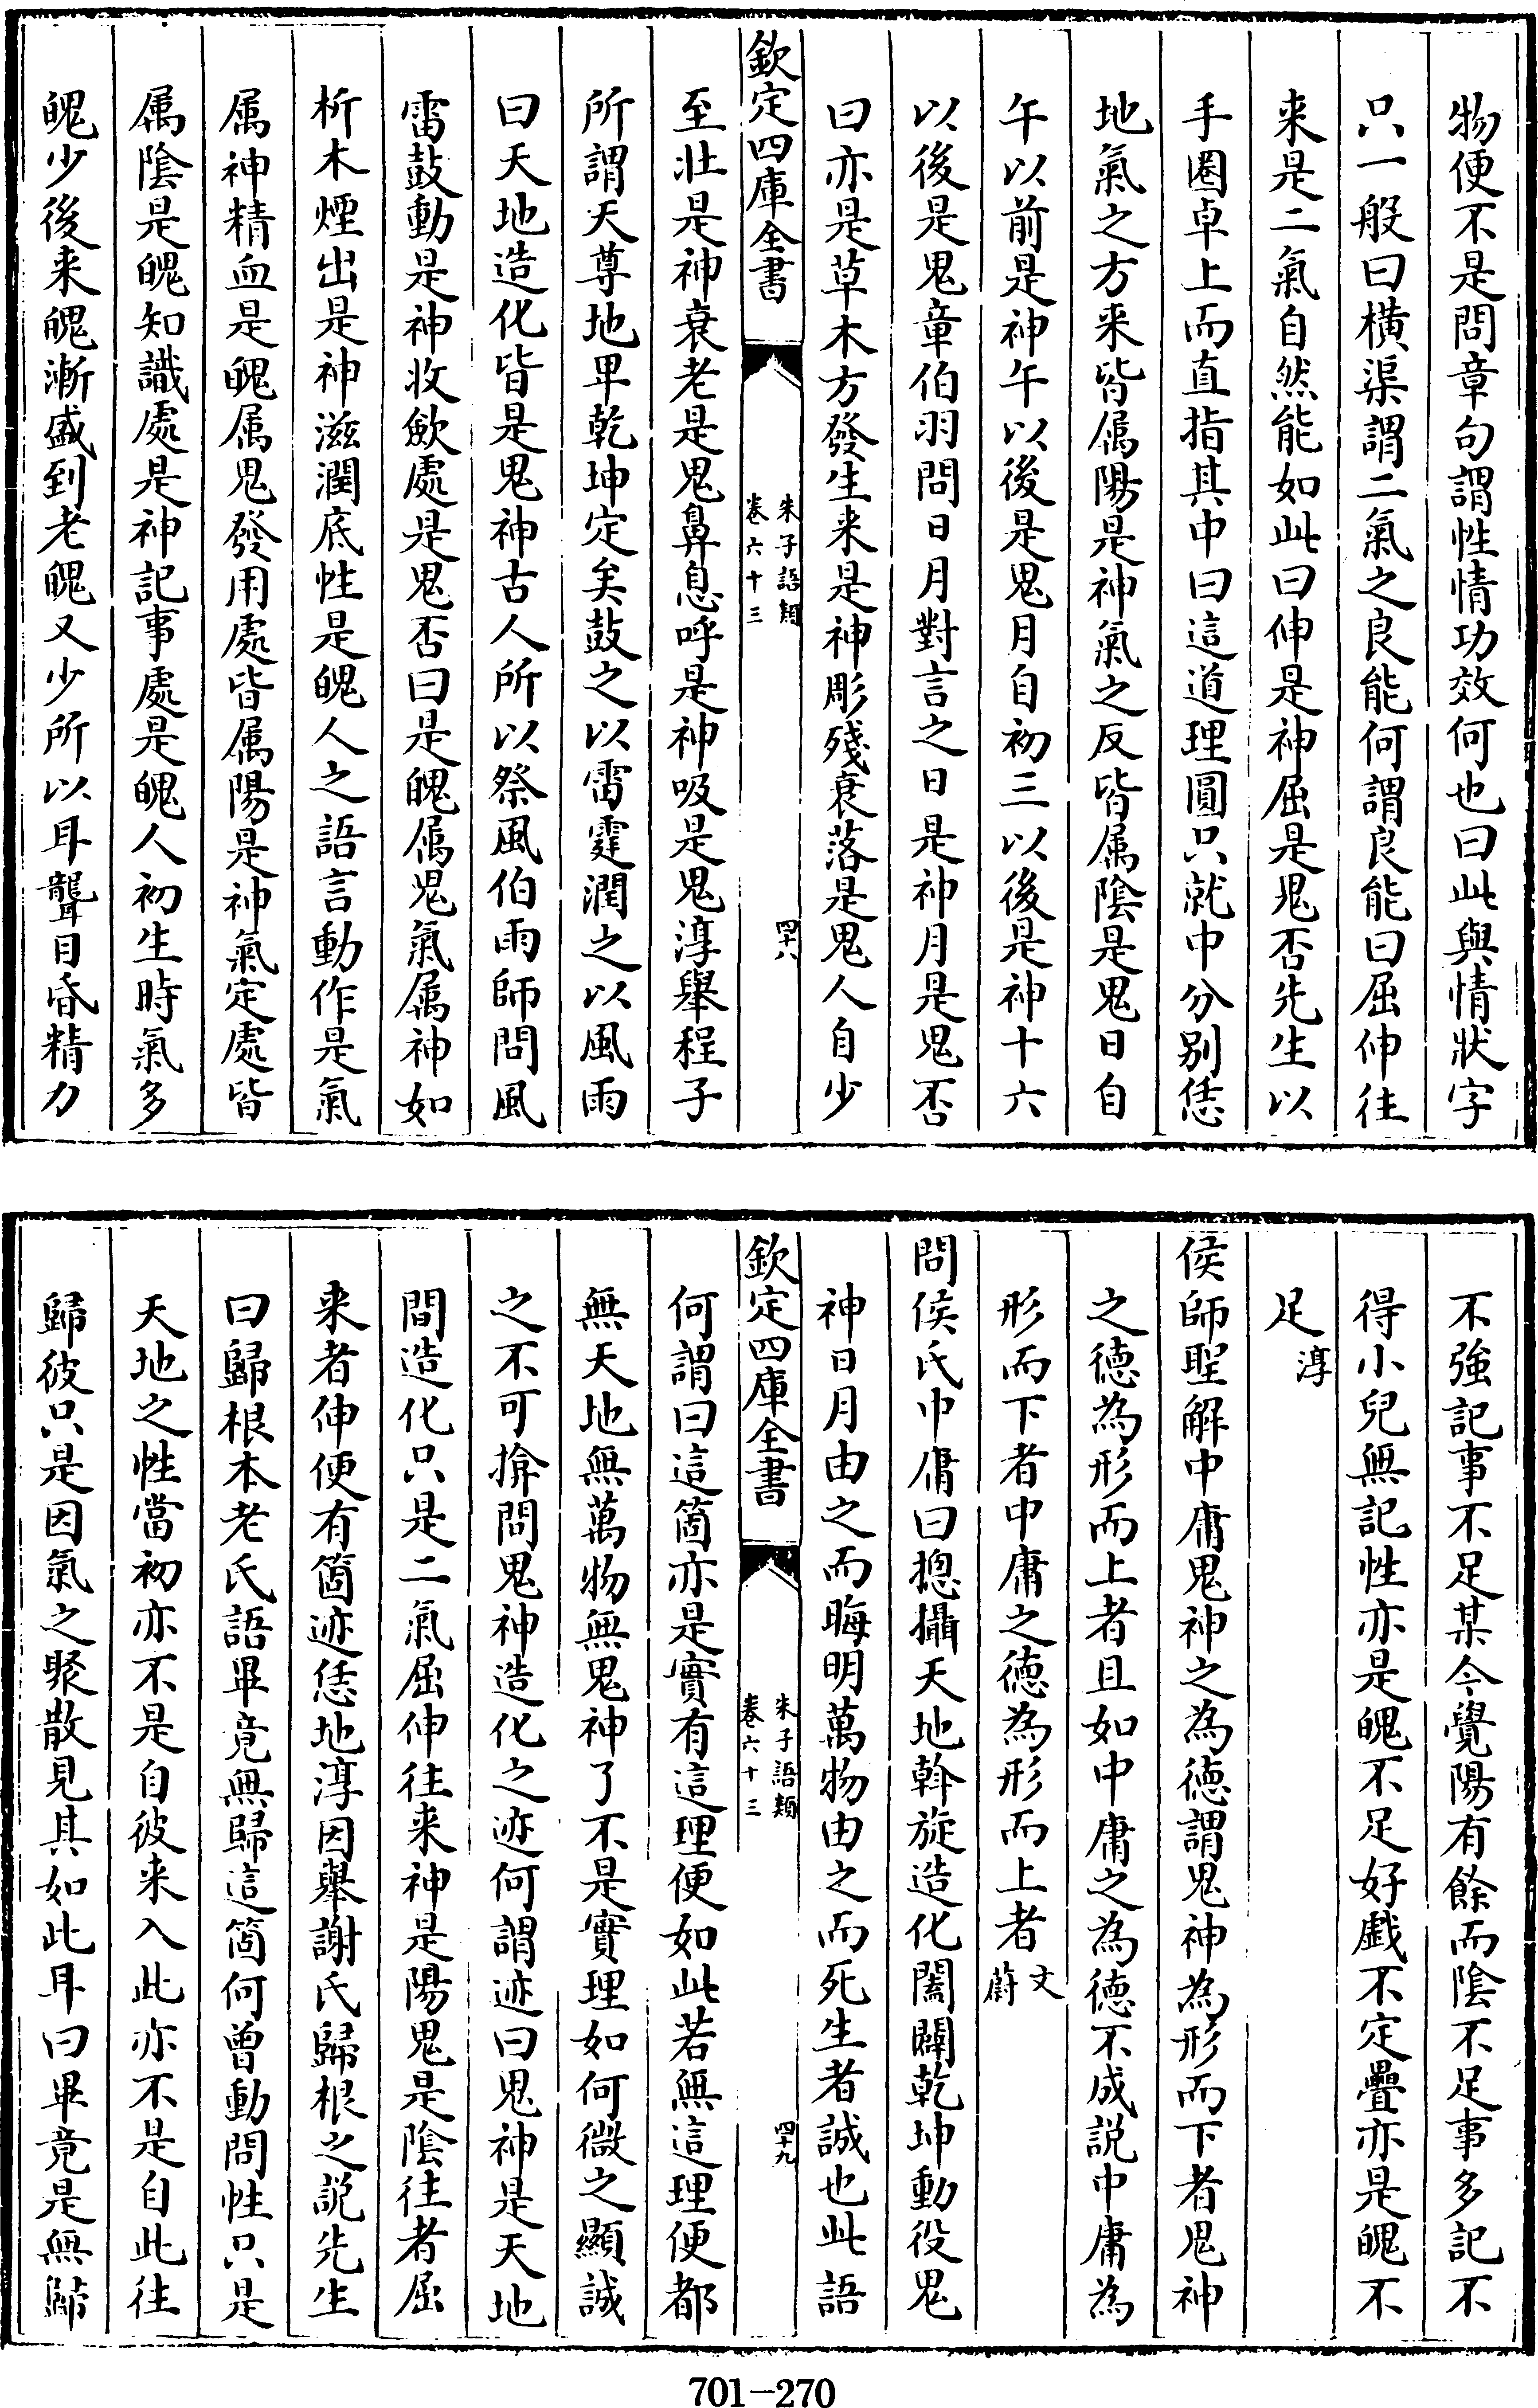 物便不是問章句謂性情功效何也曰此與情狀字
只一般曰橫渠謂二氣之良能何謂良能曰屈伸往
来是二氣自然能如此曰伸是神屈是鬼否先生以
手圈卓上而直指其中曰這道理圓只就中分别恁
地氣之方来皆屬陽是神氣之反皆屬陰是鬼日自
午以前是神午以後是鬼月自初三以後是神十六
以後是鬼童伯羽問日月對言之日是神月是鬼否
曰亦是草木方發生来是神彫殘衰落是鬼人自少
欽定四庫全書
朱子語類
卷六十三
四十八
至壯是神衰老是鬼鼻息呼是神吸是鬼淳舉程子
所謂天尊地卑乾坤定矣鼓之以雷霆潤之以風雨
曰天地造化皆是鬼神古人所以祭風伯雨師問風
雷鼓動是神收歛處是鬼否曰是魄屬鬼氣屬神如
析木煙出是神滋潤底性是魄人之語言動作是氣
屬神精血是魄屬鬼發用處皆屬陽是神氣定處皆
屬陰是魄知識處是神記事處是魄人初生時氣多
魄少後来魄漸盛到老魄又少所以耳聾目昏精力
不強記事不足某今覺陽有餘而陰不足事多記不
得小兒無記性亦是魄不足好戲不定疊亦是魄不
足淳
侯師聖解中庸鬼神之為德謂鬼神為形而下者鬼神
之德為形而上者且如中庸之為德不成説中庸為
形而下者中庸之德為形而上者文蔚
問侯氏中庸曰摠攝天地斡旋造化闔闢乾坤動役鬼
神日月由之而晦明萬物由之而死生者誠也此語
欽定四庫全書
朱子語類
卷六十三
四十九
何謂曰這箇亦是實有這理便如此若無這理便都
無天地無萬物無鬼神了不是實理如何微之顯誠
之不可揜問鬼神造化之迹何謂迹曰鬼神是天地
間造化只是二氣屈伸往来神是陽鬼是陰往者屈
来者伸便有箇迹恁地淳因舉謝氏歸根之説先生
曰歸根本老氏語畢竟無歸這箇何曾動問性只是
天地之性當初亦不是自彼来入此亦不是自此往
歸彼只是因氣之聚散見其如此耳曰畢竟是無歸
701-270